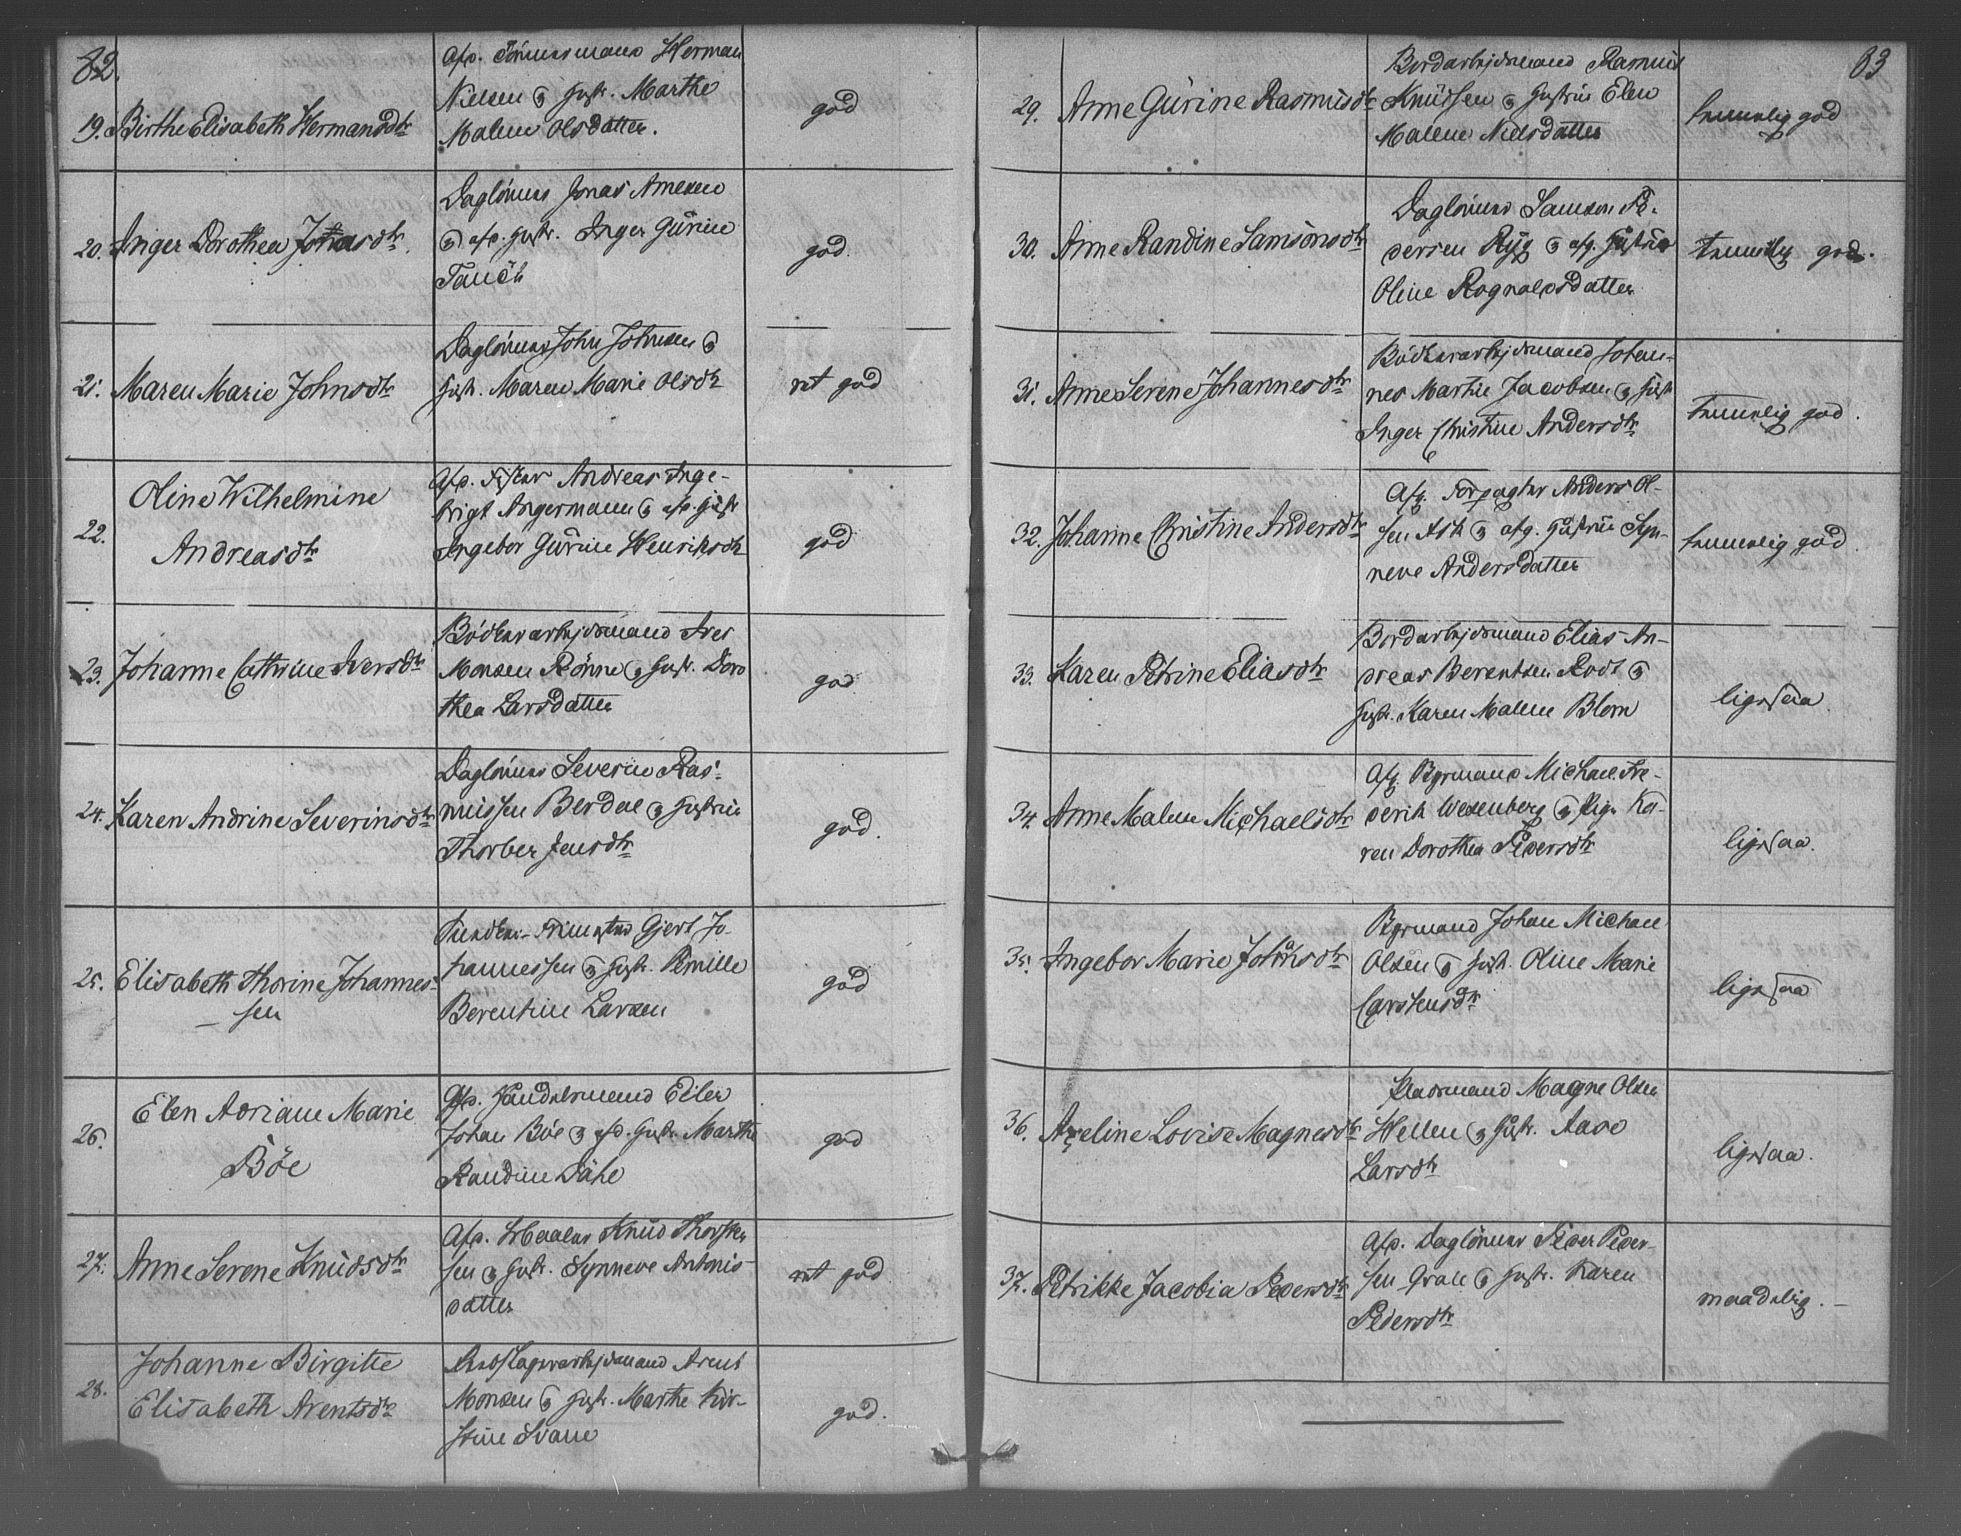 82.
19. Birthe Elisabeth Hermansdtr
Afd. Tømmermand Herman
Nielsen og Hustr. Marthe
Malene Olsdatter.
god
20. Inger Dorothea Jonasdtr.
Dagløner Jonas Arnesen
og afd. Hustr. Inger Gurine
god.
21. Maren Marie Johnsdtr
Dagløner John Johnsen og
Hustr. Maren Marie Olsdtr
ret god
22. Oline Wilhelmine
Andreasdtr
Afd. Fisker Andreas Inge-
brigt Angermann og afd. Hustr
Ingebor Gurine Henriksdtr
god
23. Johanne Cathrine Iversdtr
Bødkerarbejdsmand Iver
Monsen Rønne og Hustr. Doro
thea Larsdatter
god
24. Karen Andrine Severinsdtr
Dagløner Severin Ras-
mussen Berdal og Hustrue
Thorber Jensdtr
god.
25. Elisabeth Thorine Johannes-
sen
Gjert Jo-
hannessen og Hustr. Pernille
Berentine Larsen
god
26. Elen Adriane Marie
Böe
Afd. Handelsmand Eiler
Johan Böe og afd. Hustr. Marthe
Randine Dahe
god
27. Anne Serene Knudsdtr
Afd. Maaler Knud Thorsten
sen og Hustr. Synneve Antonis
datter
ret god
28. Johanne Birgitte
Elisabeth Arentsdtr
Rebslagerarbejdsmand Arent
Monsen og Hustr. Marthe Kir-
stine Svane
god.
83
29. Anne Gurine Rasmusdtr
Bordarbejdsmand Rasmus
Knudsen og Hustrue Elen
Malene Nielsdatter
temmelig god
30. Anne Randine Samsonsdtr
Dagløner Samson Pe-
dersen Ryg og afg. Hustrue
Oline Rognalsdatter
temmelig god.
31. Anne Serene Johannesdtr
Bødkerarbejdsmand Johan-
nes Martin Jacobsen og Hustr
Inger Christine Andersdtr
temmelig god.
32. Johanne Christine Andersdtr
Afg. Forpagter Anders Ol-
sen Ask og afg. Hustrue Syn-
neve Andersdatter
temmelig god.
33. Karen Petrine Eliasdtr
Bordarbejdsmand Elias An-
dreas Berentsen Rodt og
Hustr. Karen Malene Blom
ligesaa.
34. Anne Malene Michaelsdtr
Afg. Byrmand Michael Fre-
derik Wesenberg og Pige Ka-
ren Dorothea Pedersdtr
ligesaa.
35. Ingebor Marie Johansdtr
Byrmand Johan Michael
Olsen og Hustr. Oline Marie
Carstensdtr
ligesaa
36. Axeline Lovise Magnesdtr
Magne Olsen
Hellen og Hustr. Aase
Larsdtr
ligesaa.
37. Petrikke Jacobia Pedersdtr
Afd. Dagløner Peder Peder-
sen Qvale og Hustr. Karen
Pedersdtr
maadelig. —